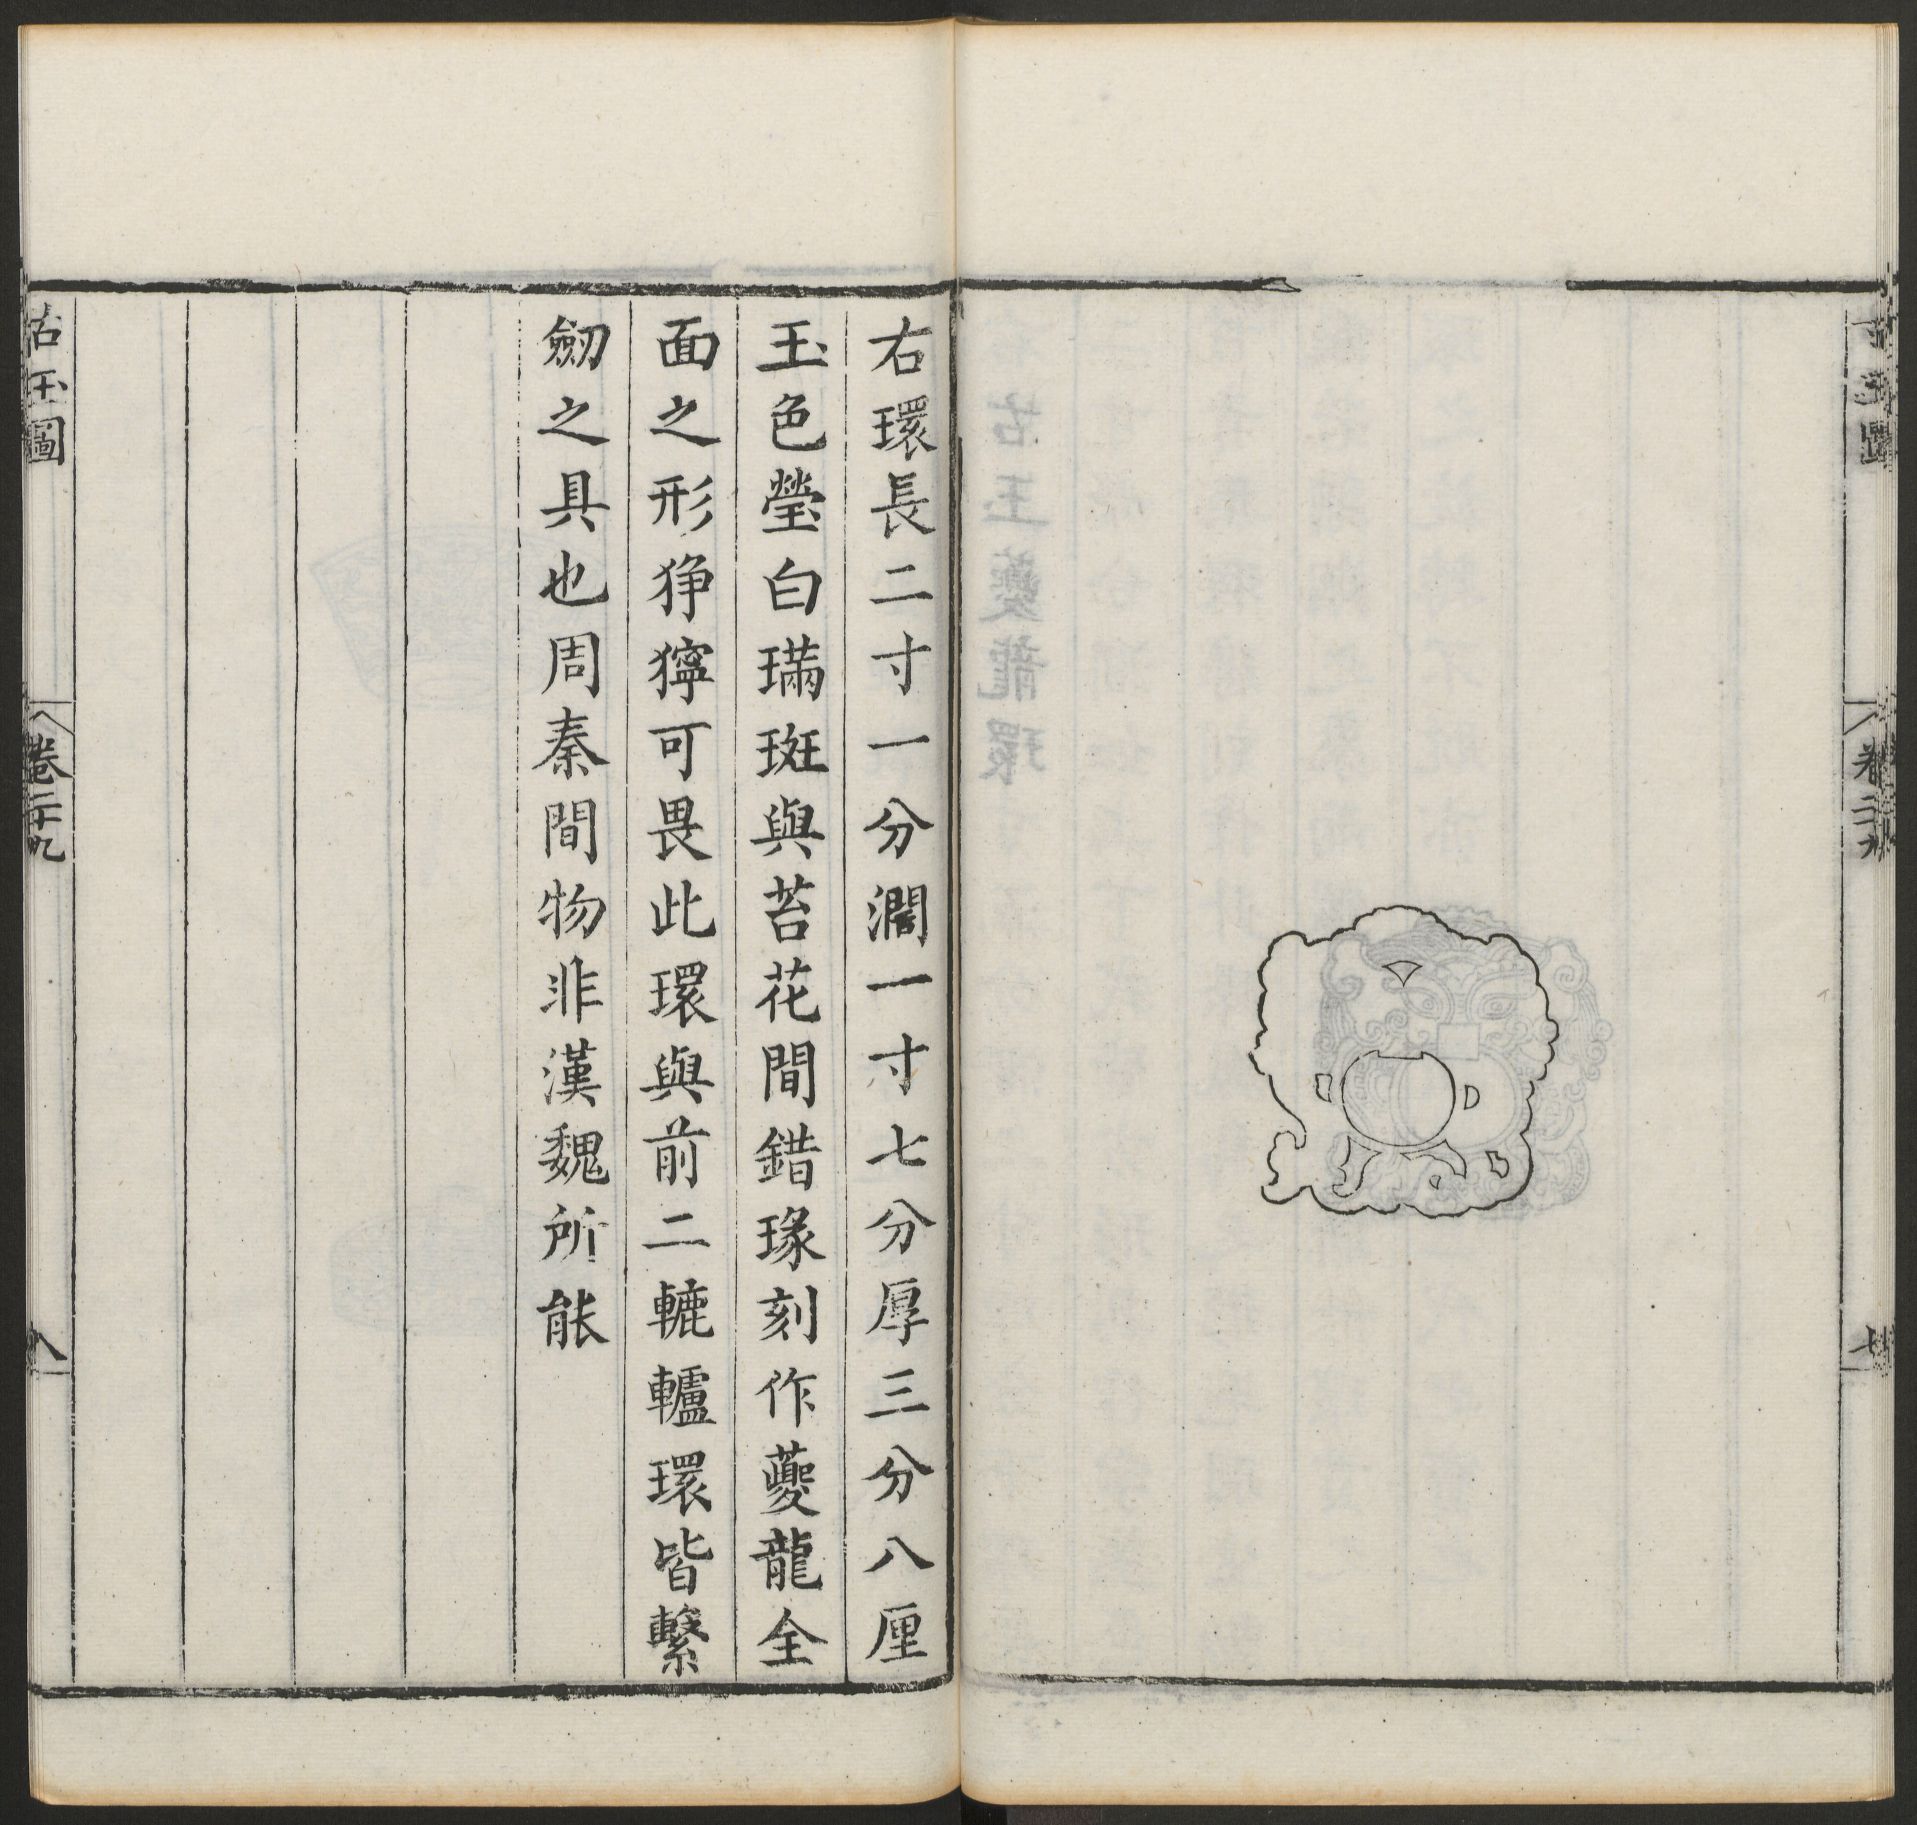 卷二十九
七
右環長二寸一分濶一寸七分厚三分八厘
玉色瑩白璊斑與苔花間錯瑑刻作夔龍全
面之形狰獰可畏此環與前二轆轤環皆繫
劒之具也周秦間物非漢魏所能
古玉圖
卷二十九
八